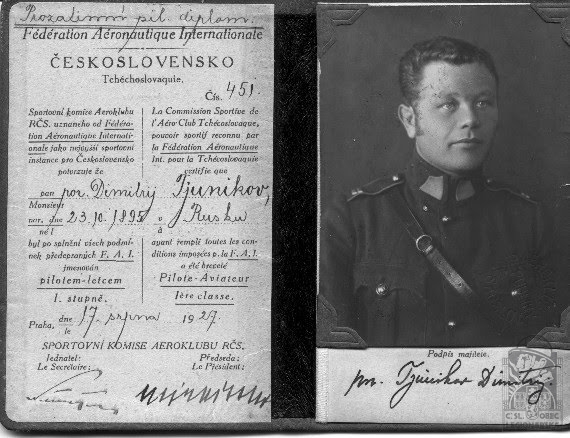 Prozatimní pil. diplom.
Fédération Aéronautique Internationale
ČESKOSLOVENSKO
Tchéchoslovaquie.
Čís. 451.
Sportovní komise Aeroklubu
RČS. uznaného od Fédéra-
tion Aéronautique Internati-
onale jako nejvyšší sportovní
instance pro Československo
potvrzuje že
La Commission Sportive de
l'Aéro Club Tchécoslovaque,
pouvoir sportif reconnu par
la Fédération Aéronautique
Int. pour la Tchécoslovaquie
certifie que
pan por. Dimitrij Tjunikov,
Monsieur
nar. dne 23.10.1895 v Rusku
né l à
byl po splnění všech podmí-
nek předepsaných F. A. I.
jmenován
pilotem-letcem
I. stupně.
ayant rempli toutes les con-
ditions imposées p. la F. A. I.
a été breveté
Pilote-Aviateur
Ière classe.
Praha, dne 17. srpna 1927.
le
SPORTOVNÍ KOMISE AEROKLUBU RČS.
Jednatel: Předseda:
Le Secrétaire: Le Président:
Podpis majitele.
Tjunikov Dimitrij.